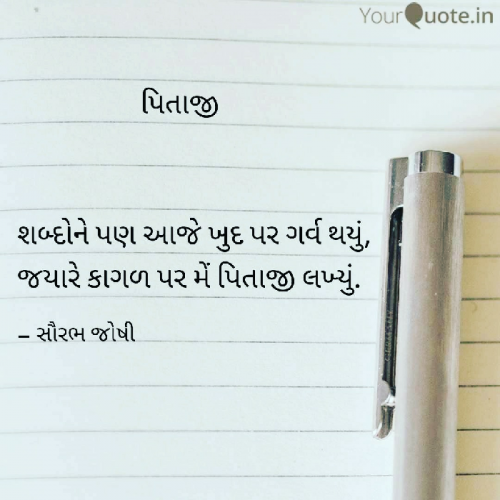 YourQuote.in
પિતાજી
શબ્દોને પણ આજે ખુદ પર ગર્વ થયું,
જયારે કાગળ પર મેં પિતાજી લખ્યું.
– સૌરભ જોષી